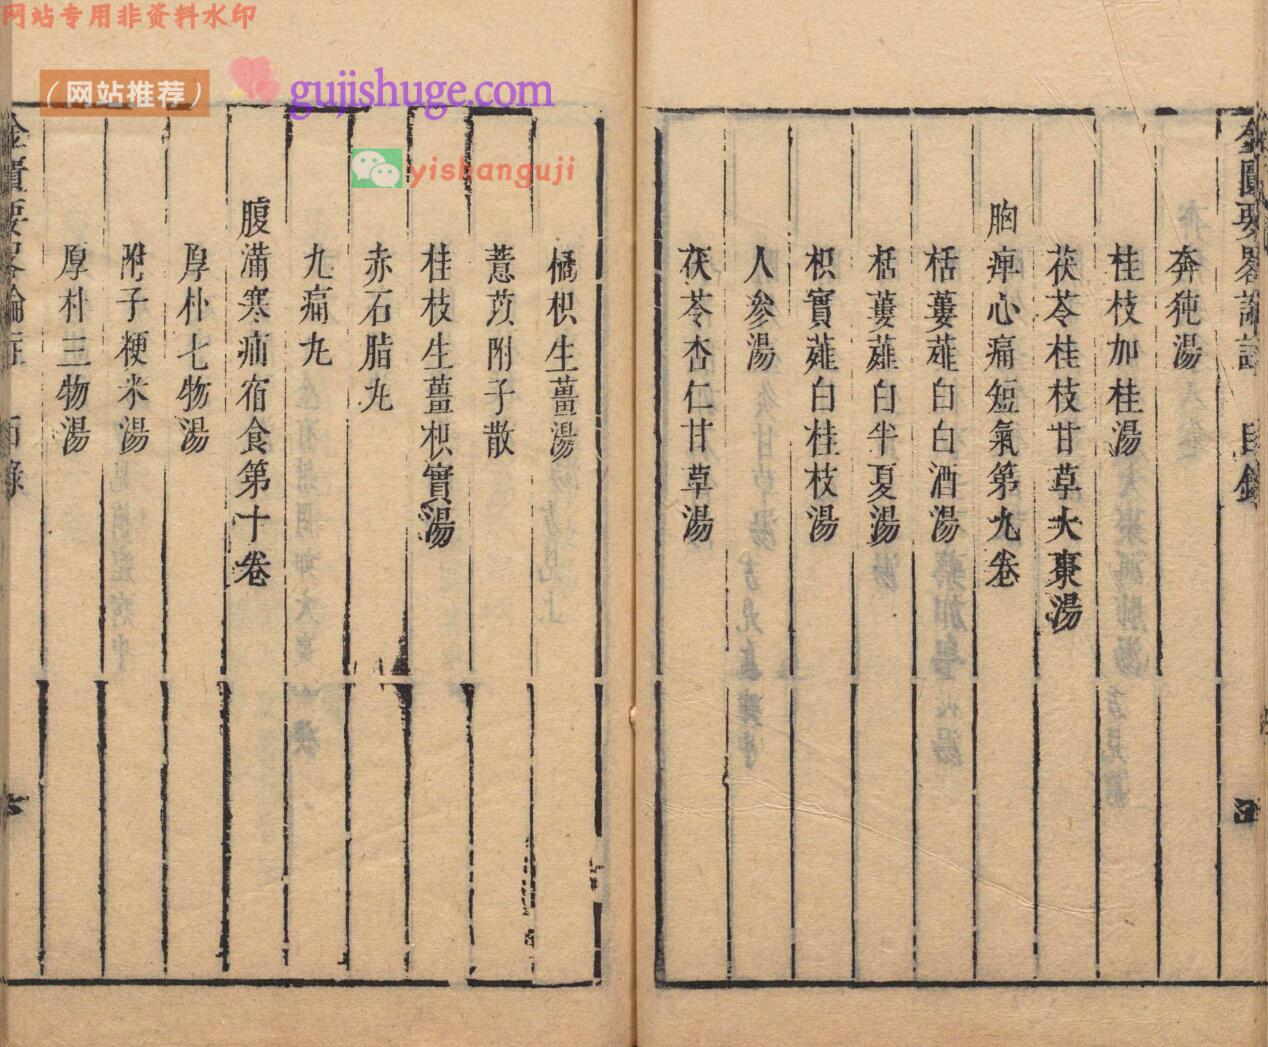 网站专用非资料水印
(网站推荐)
gujishuge.com
yishanguji
奔㹠湯
桂枝加桂湯
茯苓桂枝甘草大棗湯
胸痺心痛短氣第九卷
栝蔞薤白白酒湯
栝蔞薤白半夏湯
枳實薤白桂枝湯
人參湯
茯苓杏仁甘草湯
橘枳生薑湯
薏苡附子散
桂枝生薑枳實湯
赤石脂丸
九痛丸
腹滿寒疝宿食第十卷
厚朴七物湯
附子粳米湯
厚朴三物湯